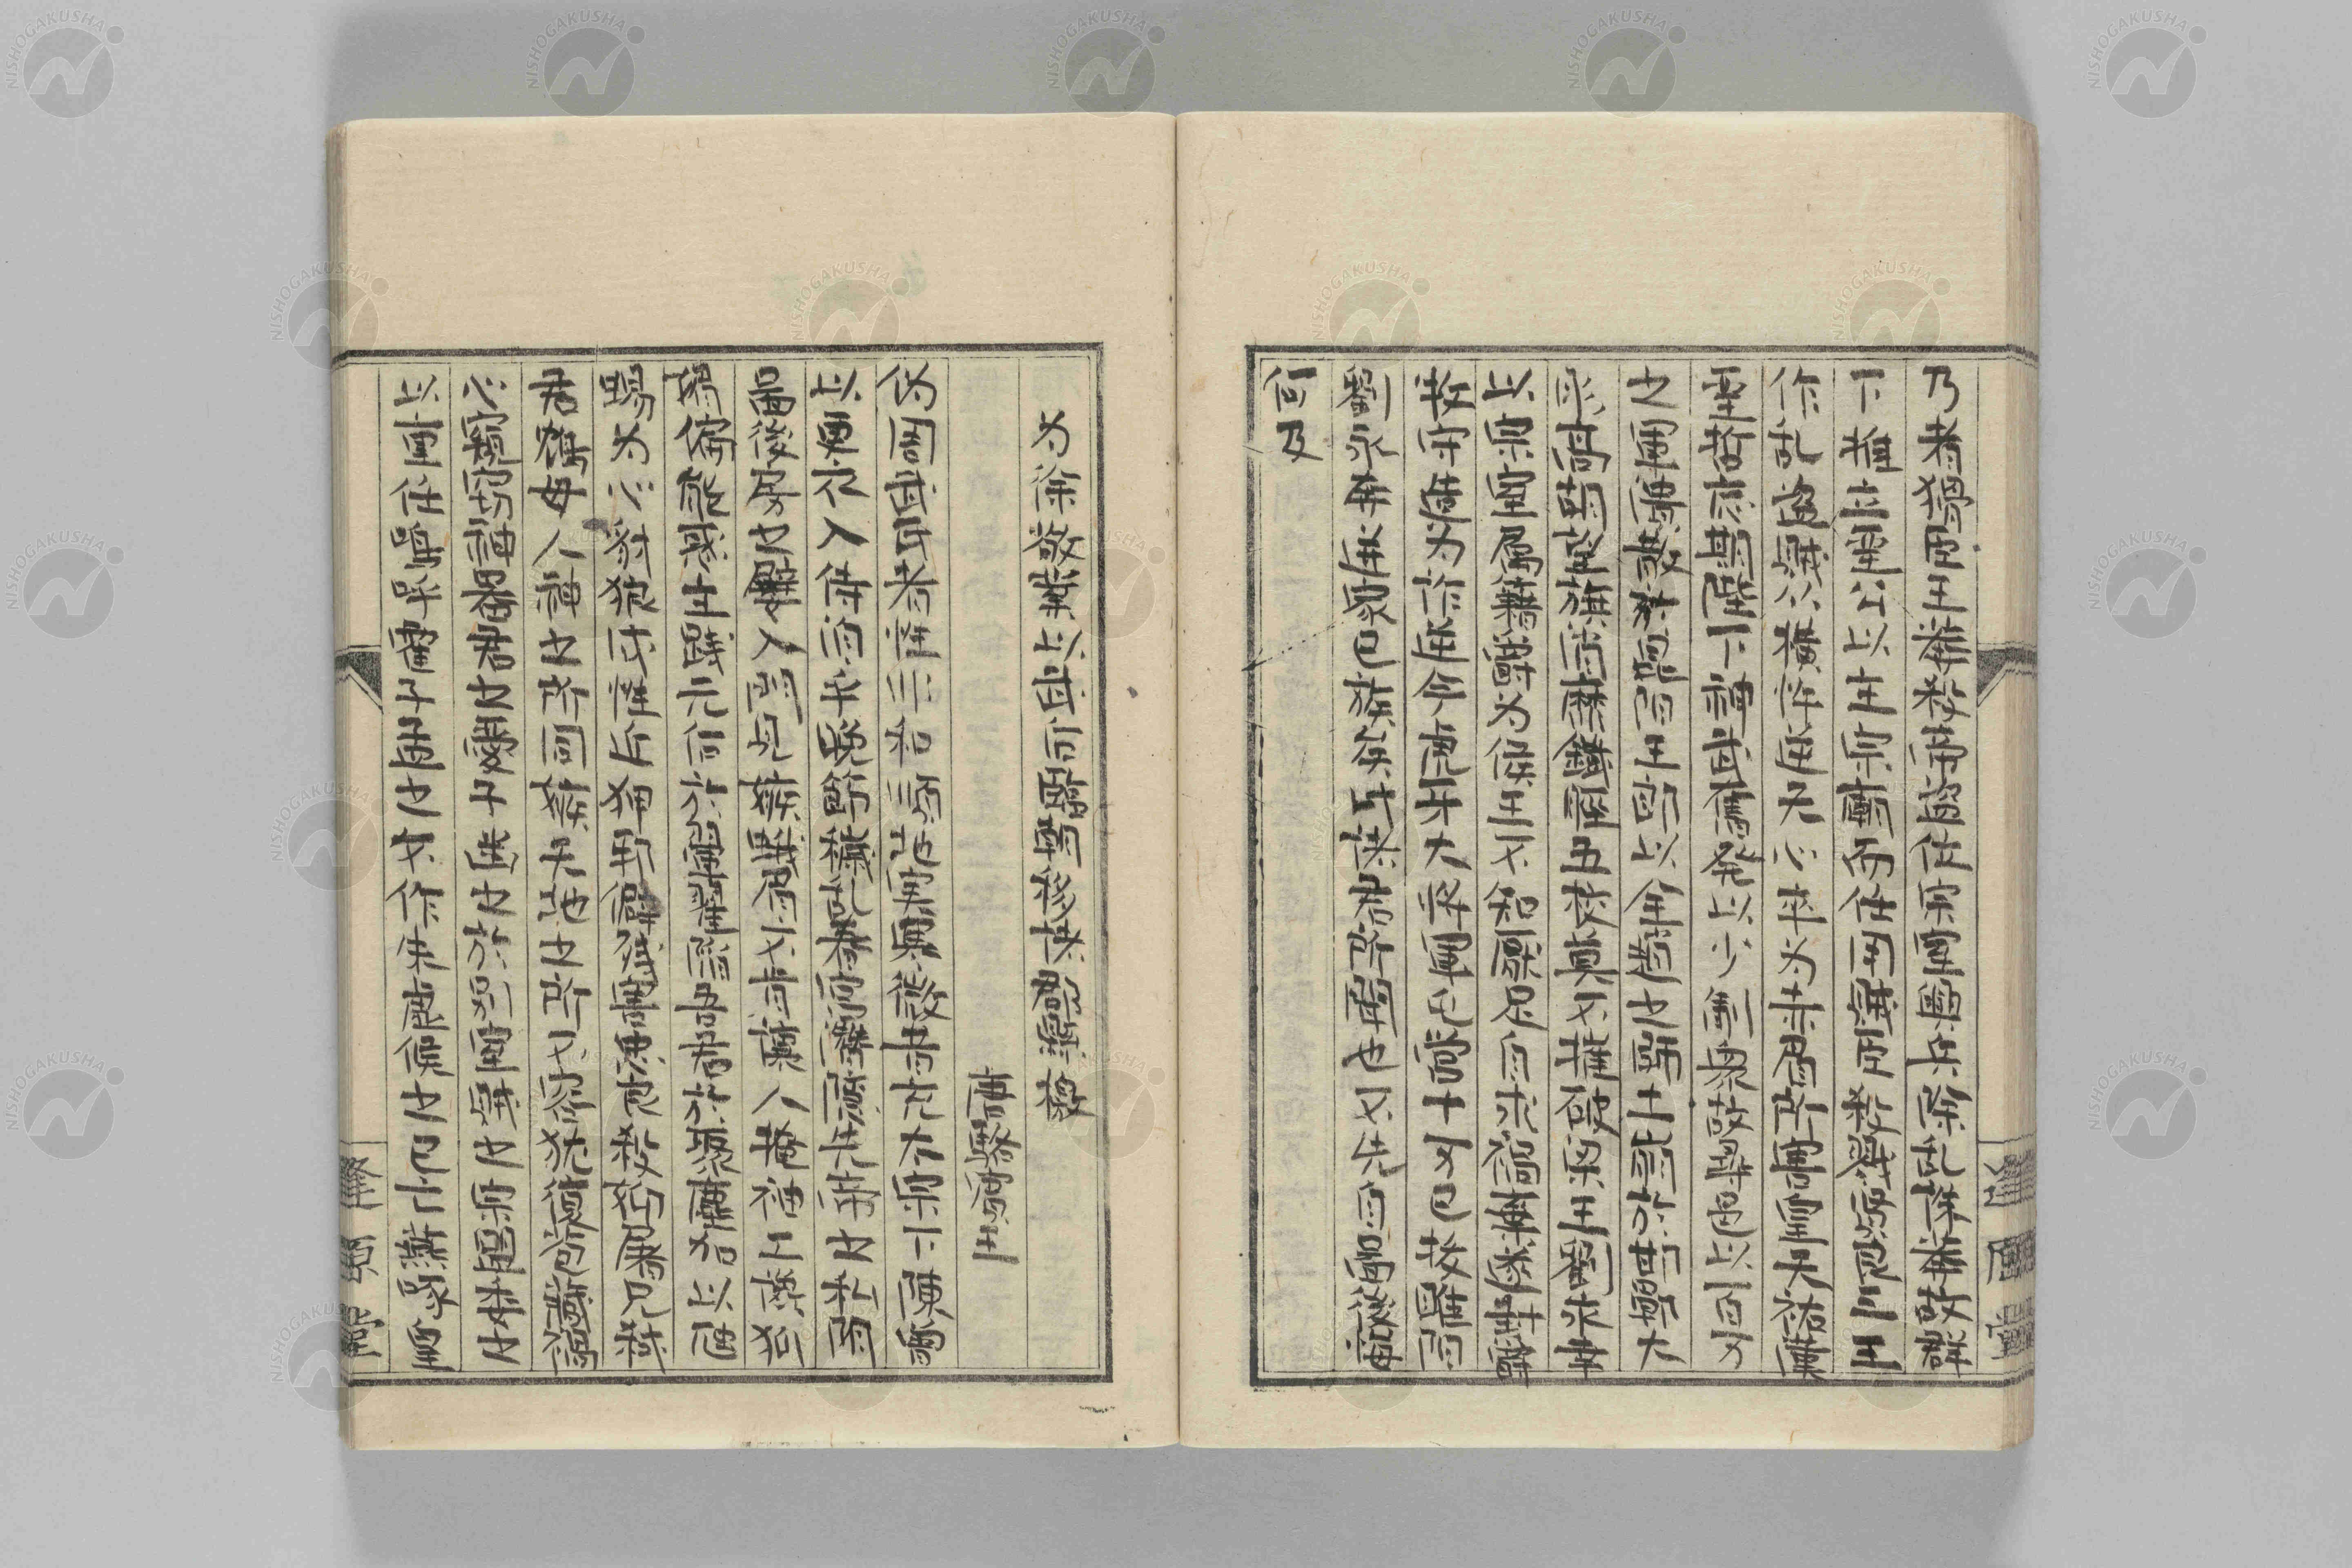 乃者賊臣王莽殺帝盜位宗室興兵除亂誅莽故群
下推立聖公以主宗廟而任用賊臣殺戮賢良三王
作乱盜賊從橫忤逆天心卒為赤眉所害皇天祐漢
聖哲應期陛下神武奮發以少制眾故尋邑以百万
之軍潰散於昆陽王郎以全趙之師土崩於邯鄲大
肜高胡望旗消靡鐵脛五校莫不摧破梁王劉永幸
以宗室屬籍爵為侯王不知厭足自求禍棄遂封爵
牧守造為詐逆今虎牙大將軍屯營十万已拔睢陽
劉永奔迸家已族矣此諸君所聞也不先自圖後悔
何及
為徐敬業以武后臨朝移諸郡縣檄
唐駱賓王
偽周武氏者性非和順地実寒微昔充太宗下陳曾
以更衣入侍洎乎晚節穢乱春宮潛隱先帝之私陰
圖後房之嬖入門見嫉蛾眉不肯讓人掩袖工讒狐
媚偏能惑主踐元后於翬翟陷吾君於聚麀加以虺
蜴為心豺狼成性近狎邪僻殘害忠良殺姊屠兄弒
君鴆母人神之所同嫉天地之所不容猶復包藏禍
心窺窃神器君之愛子幽之於別宮賊之宗盟委之
以重任嗚呼霍子孟之不作朱虛侯之已亡燕啄皇